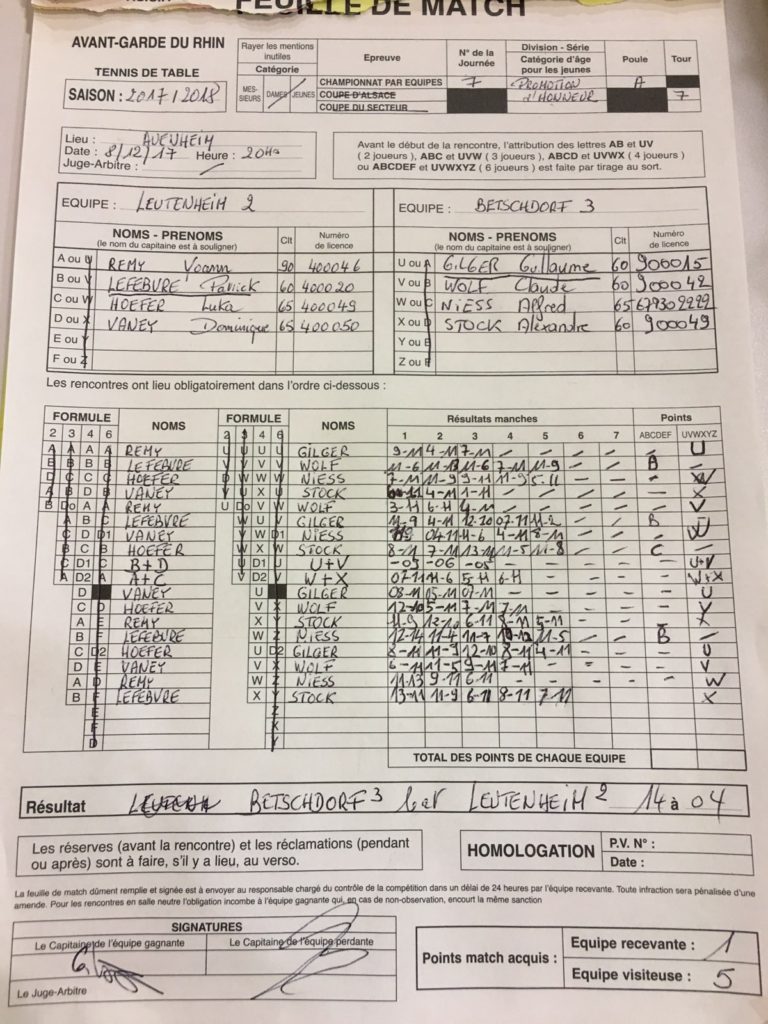 FEUILLE DE MATCH
AVANT-GARDE DU RHIN
TENNIS DE TABLE
SAISON : 2017/2018
Rayer les mentions inutiles
Catégorie
MES-SIEURS DAMES JEUNES
Epreuve
CHAMPIONNAT PAR EQUIPES
COUPE D'ALSACE
COUPE DU SECTEUR
N° de la Journée
7
Division - Série
Catégorie d'âge pour les jeunes
PROMOTION d'HONNEUR
Poule
A
Tour
7
Lieu : AUENHEIM
Date : 8/12/17 Heure : 20H00
Juge-Arbitre :
Avant le début de la rencontre, l'attribution des lettres AB et UV
( 2 joueurs ), ABC et UVW ( 3 joueurs ), ABCD et UVWX ( 4 joueurs )
ou ABCDEF et UVWXYZ ( 6 joueurs ) est faite par tirage au sort.
EQUIPE : LEUTENHEIM 2
NOMS - PRENOMS Clt Numéro de licence
(le nom du capitaine est à souligner)
A ou U REMY Yoann 90 400046
B ou V LEFEBURE Patrick 60 400020
C ou W HOEFER Luka 65 400049
D ou X VANEY Dominique 65 400050
E ou Y
F ou Z
EQUIPE : BETSCHDORF 3
NOMS - PRENOMS Clt Numéro de licence
(le nom du capitaine est à souligner)
U ou A GILGER Guillaume 60 900015
V ou B WOLF Claude 60 900042
W ou C NIESS Alfred 65 679302222
X ou D STOCK Alexandre 60 900049
Y ou E
Z ou F
Les rencontres ont lieu obligatoirement dans l'ordre ci-dessous :
FORMULE NOMS FORMULE NOMS Résultats manches Points
2 3 4 6 2 3 4 6 1 2 3 4 5 6 7 ABCDEF UVWXYZ
A A A A REMY U U U U GILGER 9-11 4-11 7-11 - - - - - U
B B B B LEFEBURE V V V V WOLF 11-6 11-13 11-6 7-11 11-9 - - B -
D C C C HOEFER W W W NIESS 7-11 11-9 9-11 11-9 5-11 - - - W
VANEY X U STOCK 4-11 1-11 - - - - - X
B Do A A REMY U Do V V WOLF 3-11 6-11 4-11 - - - - - V
A B C LEFEBURE U V GILGER 11-9 4-11 12-10 07-11 11-2 - - B
D D1 VANEY W D1 NIESS 04-11 11-6 4-11 8-11 - - - W
C B HOEFER X W STOCK 8-11 7-11 13-11 11-5 11-8 - - C -
C D1 C B+D D1 U U+V -05 -06 -05 - - - - - U+V
A D2 A A+C D2 V W+X 07-11 11-6 5-11 6-11 - - - - W+X
D VANEY U GILGER 08-11 05-11 07-11 - - - - - U
C D HOEFER V X WOLF 12-10 5-11 7-11 7-11 - - - V
A E REMY X Y STOCK 11-9 12-10 6-11 8-11 5-11 - - - X
B F LEFEBURE W Z NIESS 12-14 11-4 11-7 10-12 11-5 - - B -
C D2 HOEFER U D2 GILGER 8-11 11-9 12-10 8-11 4-11 - - - U
D E VANEY V X WOLF 6-11 11-5 9-11 7-11 - - - - V
A D REMY W Z NIESS 11-13 9-11 6-11 - - - - - W
B F LEFEBURE X Y STOCK 13-11 11-9 6-11 8-11 7-11 X
TOTAL DES POINTS DE CHAQUE EQUIPE
Résultat BETSCHDORF 3 bat LEUTENHEIM 2 14 à 04
Les réserves (avant la rencontre) et les réclamations (pendant
ou après) sont à faire, s'il y a lieu, au verso.
HOMOLOGATION
P.V. N° :
Date :
La feuille de match dûment remplie et signée est à envoyer au responsable chargé du contrôle de la compétition dans un délai de 24 heures par l'équipe recevante. Toute infraction sera pénalisée d'une
amende. Pour les rencontres en salle neutre l'obligation incombe à l'équipe gagnante qui, en cas de non-observation, encourt la même sanction
SIGNATURES
Le Capitaine de l'équipe gagnante Le Capitaine de l'équipe perdante
Le Juge-Arbitre
Points match acquis :
Equipe recevante : 1
Equipe visiteuse : 5